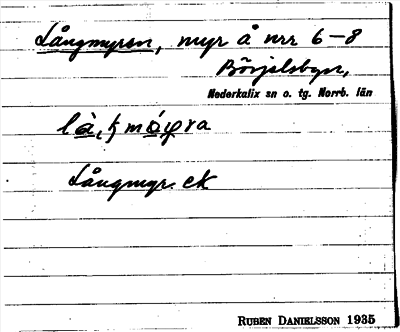 Långmyran, myr å nrr 6-8
Börjelsbyn,
Nederkalix sn o. tg. Norrb. län
Långmyr. ek
RUBEN DANIELSSON 1935